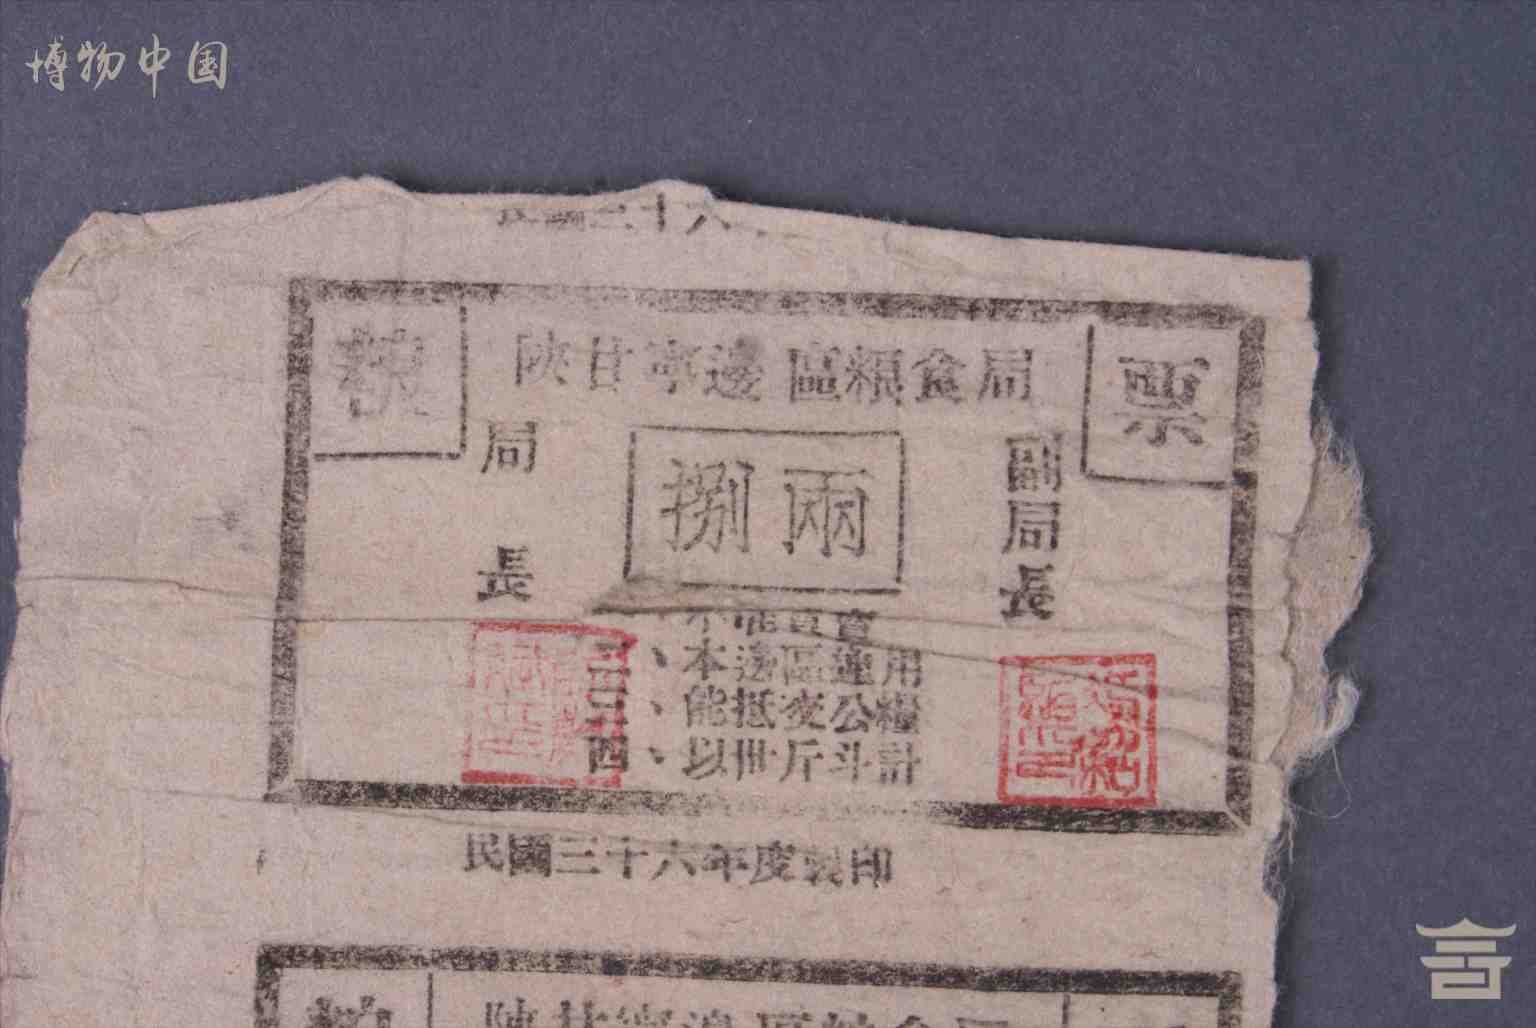 博物中国
民國三十六
糧
票
陝甘寧邊區粮食局
局長
捌兩
副局長
不能買賣
二、本邊區通用
三、能抵交公糧
四、以世斤斗計
民國三十六年度製印
陝甘寧邊區粮食局